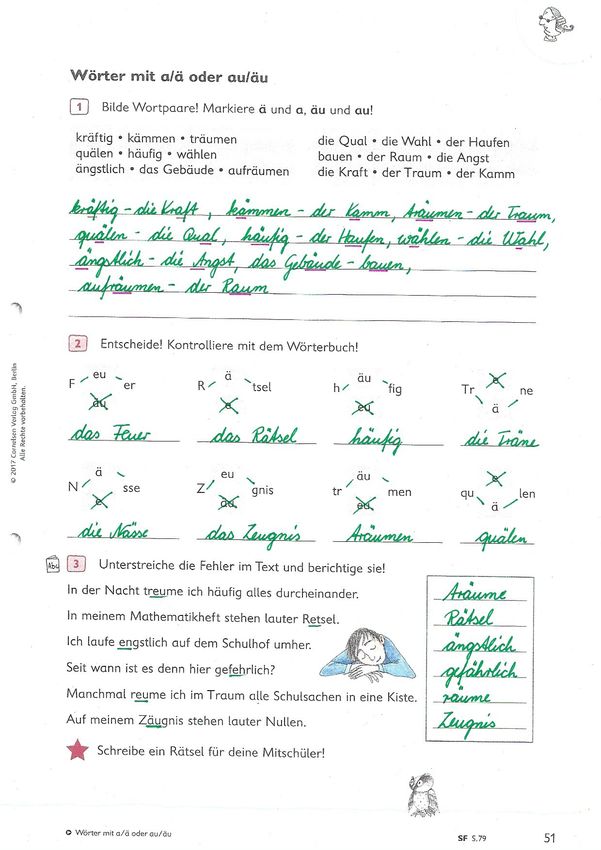 Wörter mit a/ä oder au/äu
1 Bilde Wortpaare! Markiere ä und a, äu und au!
kräftig • kämmen • träumen
quälen • häufig • wählen
ängstlich • das Gebäude • aufräumen
die Qual • die Wahl • der Haufen
bauen • der Raum • die Angst
die Kraft • der Traum • der Kamm
kräftig - die Kraft, kämmen - der Kamm, träumen - der Traum,
quälen - die Qual, häufig - der Haufen, wählen - die Wahl,
ängstlich - die Angst, das Gebäude - bauen,
aufräumen - der Raum
2 Entscheide! Kontrolliere mit dem Wörterbuch!
F eu er
äu
R ä tsel
e
h äu fig
eu
Tr e ne
ä
das Feuer das Rätsel häufig die Träne
N ä sse
e
Z eu gnis
äu
tr äu men
eu
qu e len
ä
die Nässe das Zeugnis träumen quälen
3 Unterstreiche die Fehler im Text und berichtige sie!
In der Nacht treume ich häufig alles durcheinander.
In meinem Mathematikheft stehen lauter Retsel.
Ich laufe engstlich auf dem Schulhof umher.
Seit wann ist es denn hier gefehrlich?
Manchmal reume ich im Traum alle Schulsachen in eine Kiste.
Auf meinem Zäugnis stehen lauter Nullen.
träume
Rätsel
ängstlich
gefährlich
räume
Zeugnis
Schreibe ein Rätsel für deine Mitschüler!
© 2017 Cornelsen Verlag GmbH, Berlin
Alle Rechte vorbehalten.
Wörter mit a/ä oder au/äu
SF S.79
51